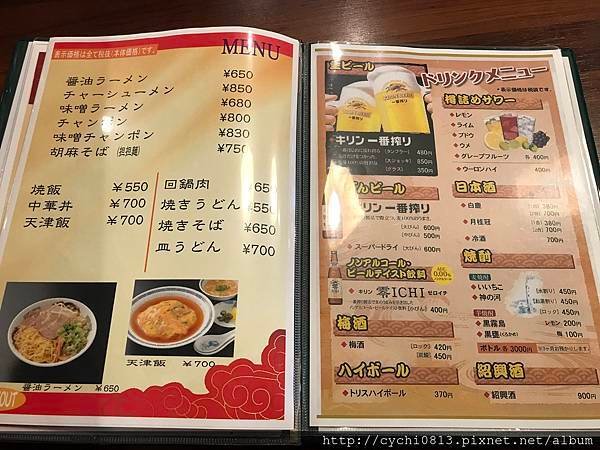 表示価格は全て税抜(本体価格)です。
MENU
醤油ラーメン ¥650
チャーシューメン ¥850
味噌ラーメン ¥680
チャンポン ¥800
味噌チャンポン ¥830
胡麻そば (担担麺) ¥750
焼飯 ¥550
中華丼 ¥700
天津飯 ¥700
回鍋肉 ¥650
焼きうどん ¥550
焼きそば ¥650
皿うどん ¥700
醤油ラーメン ¥650
天津飯 ¥700
OUT
ドリンクメニュー
生ビール
キリン一番搾り
(タンブラー) 480円
(大ジョッキ) 850円
(グラス) 350円
びんビール
キリン一番搾り
(大びん) 600円
(中びん) 500円
スーパードライ (大びん) 600円
ノンアルコール・
ビールテイスト飲料
ALC. 0.00%
キリン 零ICHI ゼロイチ
(小びん) 400円
梅酒
梅酒 (ロック) 420円
(炭酸) 450円
ハイボール
トリスハイボール 370円
樽詰めサワー
レモン
ライム
ブドウ
ウメ
グレープフルーツ 各 400円
ウーロンハイ 400円
日本酒
白鹿 (1合) 380円
(2合) 700円
月桂冠 (1合) 380円
(2合) 700円
冷酒 700円
焼酎
麦焼酎
いいちこ (水割り) 450円
神の河 (お湯割り) 450円
芋焼酎 (ロック) 450円
黒霧島 レモン 200円
黒甕(くろかめ) 梅 100円
ボトル 各 3000円
紹興酒
紹興酒 900円
http://cychi0813.pixnet.net/album